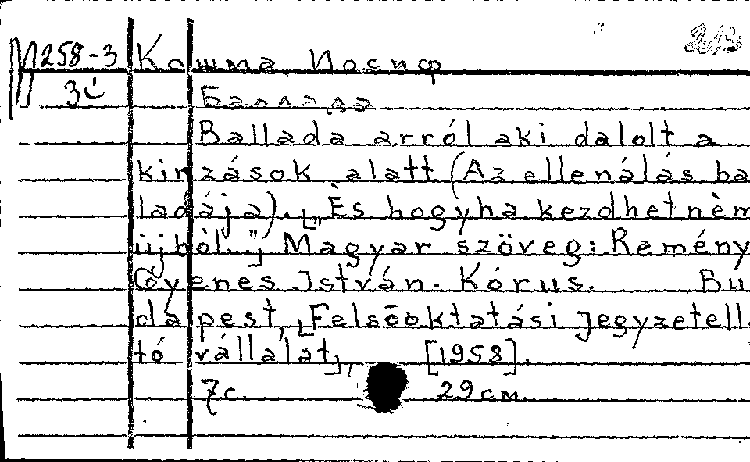 М 258-3 Косма, Иосиф
3й Баллада
Ballada arról aki dalolt a
kinzások alatt (Az ellenálás bal
ladája). „És hogyha kezdhetném
újból..." Magyar szöveg: Remény
Gyenes István. Kórus. Bu
dapest, [Felsőoktatási Jegyzetellá
tó vállalat], [1958].
7 с. 29 см.